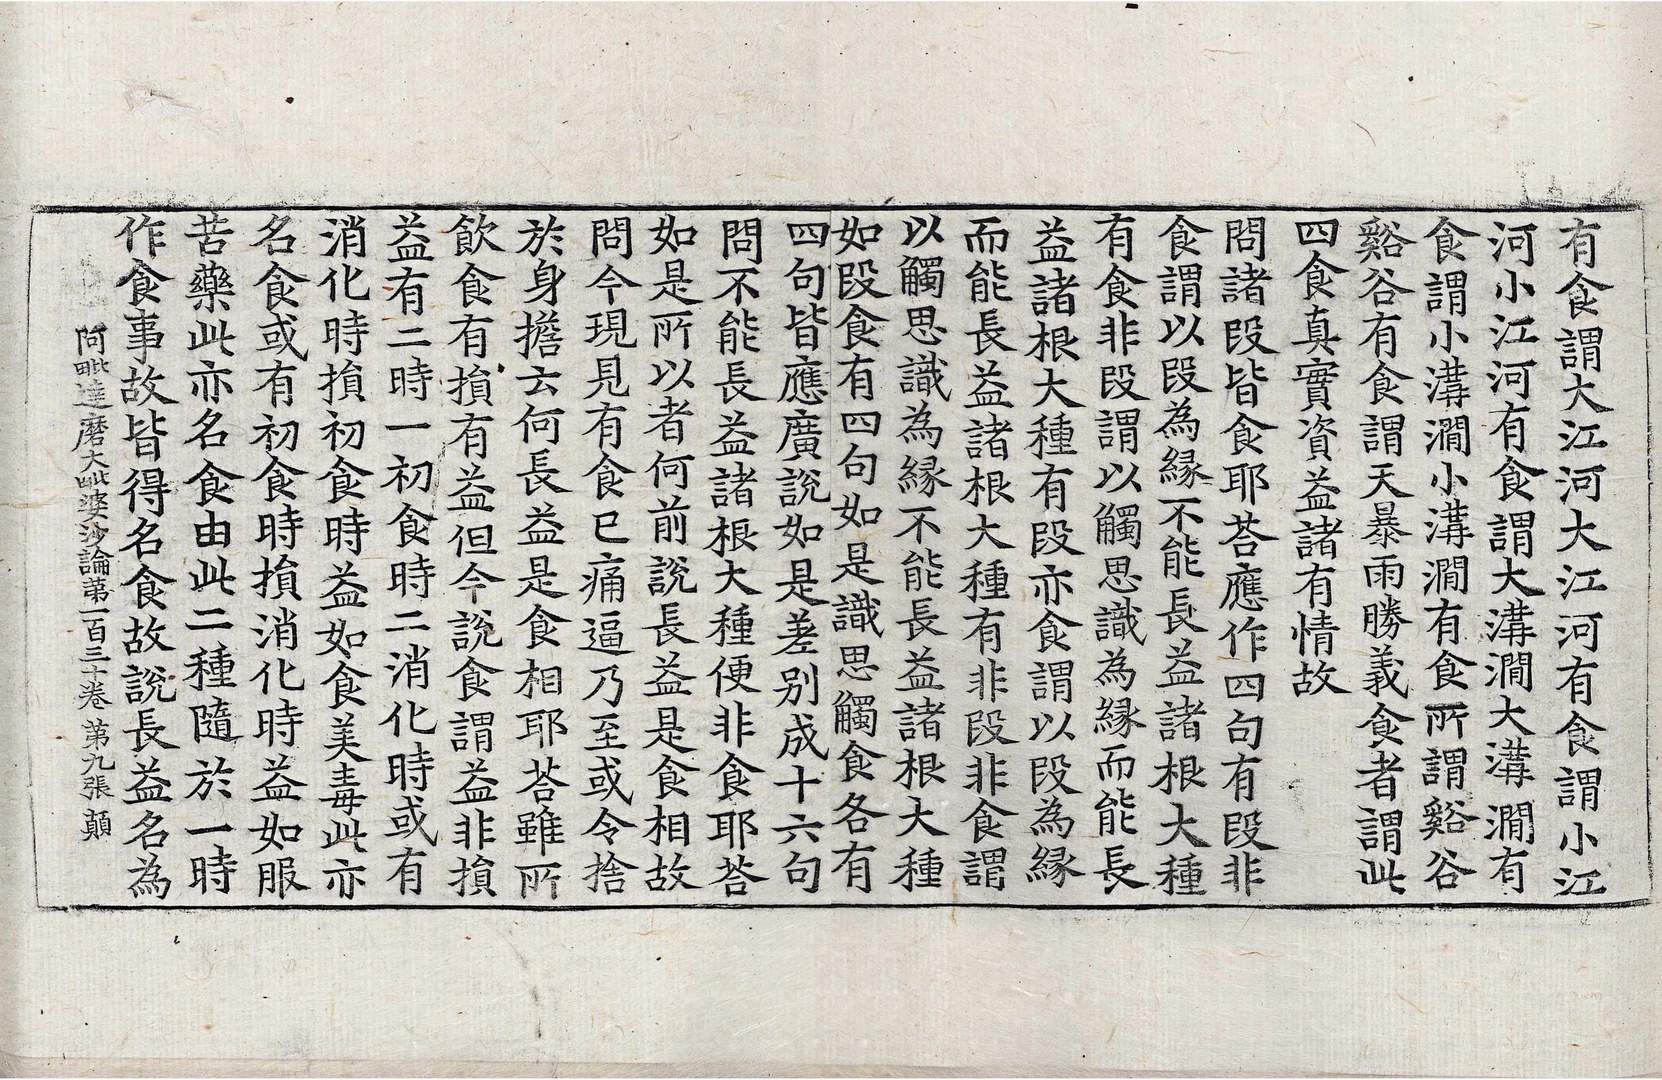 有食謂大江河大江河有食謂小江
河小江河有食謂大溝澗大溝澗有
食謂小溝澗小溝澗有食所謂谿谷
谿谷有食謂天暴雨勝義食者謂此
四食真實資益諸有情故
問諸段皆食耶荅應作四句有段非
食謂以段為縁不能長益諸根大種
有食非段謂以觸思識為縁而能長
益諸根大種有段亦食謂以段為縁
而能長益諸根大種有非段非食謂
以觸思識為縁不能長益諸根大種
如段食有四句如是識思觸食各有
四句皆應廣說如是差別成十六句
問不能長益諸根大種便非食耶荅
如是所以者何前說長益是食相故
問今現見有食已痛逼乃至或令捨
於身擔云何長益是食相耶荅雖所
飲食有損有益但今說食謂益非損
益有二時一初食時二消化時或有
消化時損初食時益如食美毒此亦
名食或有初食時損消化時益如服
苦藥此亦名食由此二種隨於一時
作食事故皆得名食故說長益名為
阿毗達磨大毗婆沙論第一百三十卷 第九張 顛